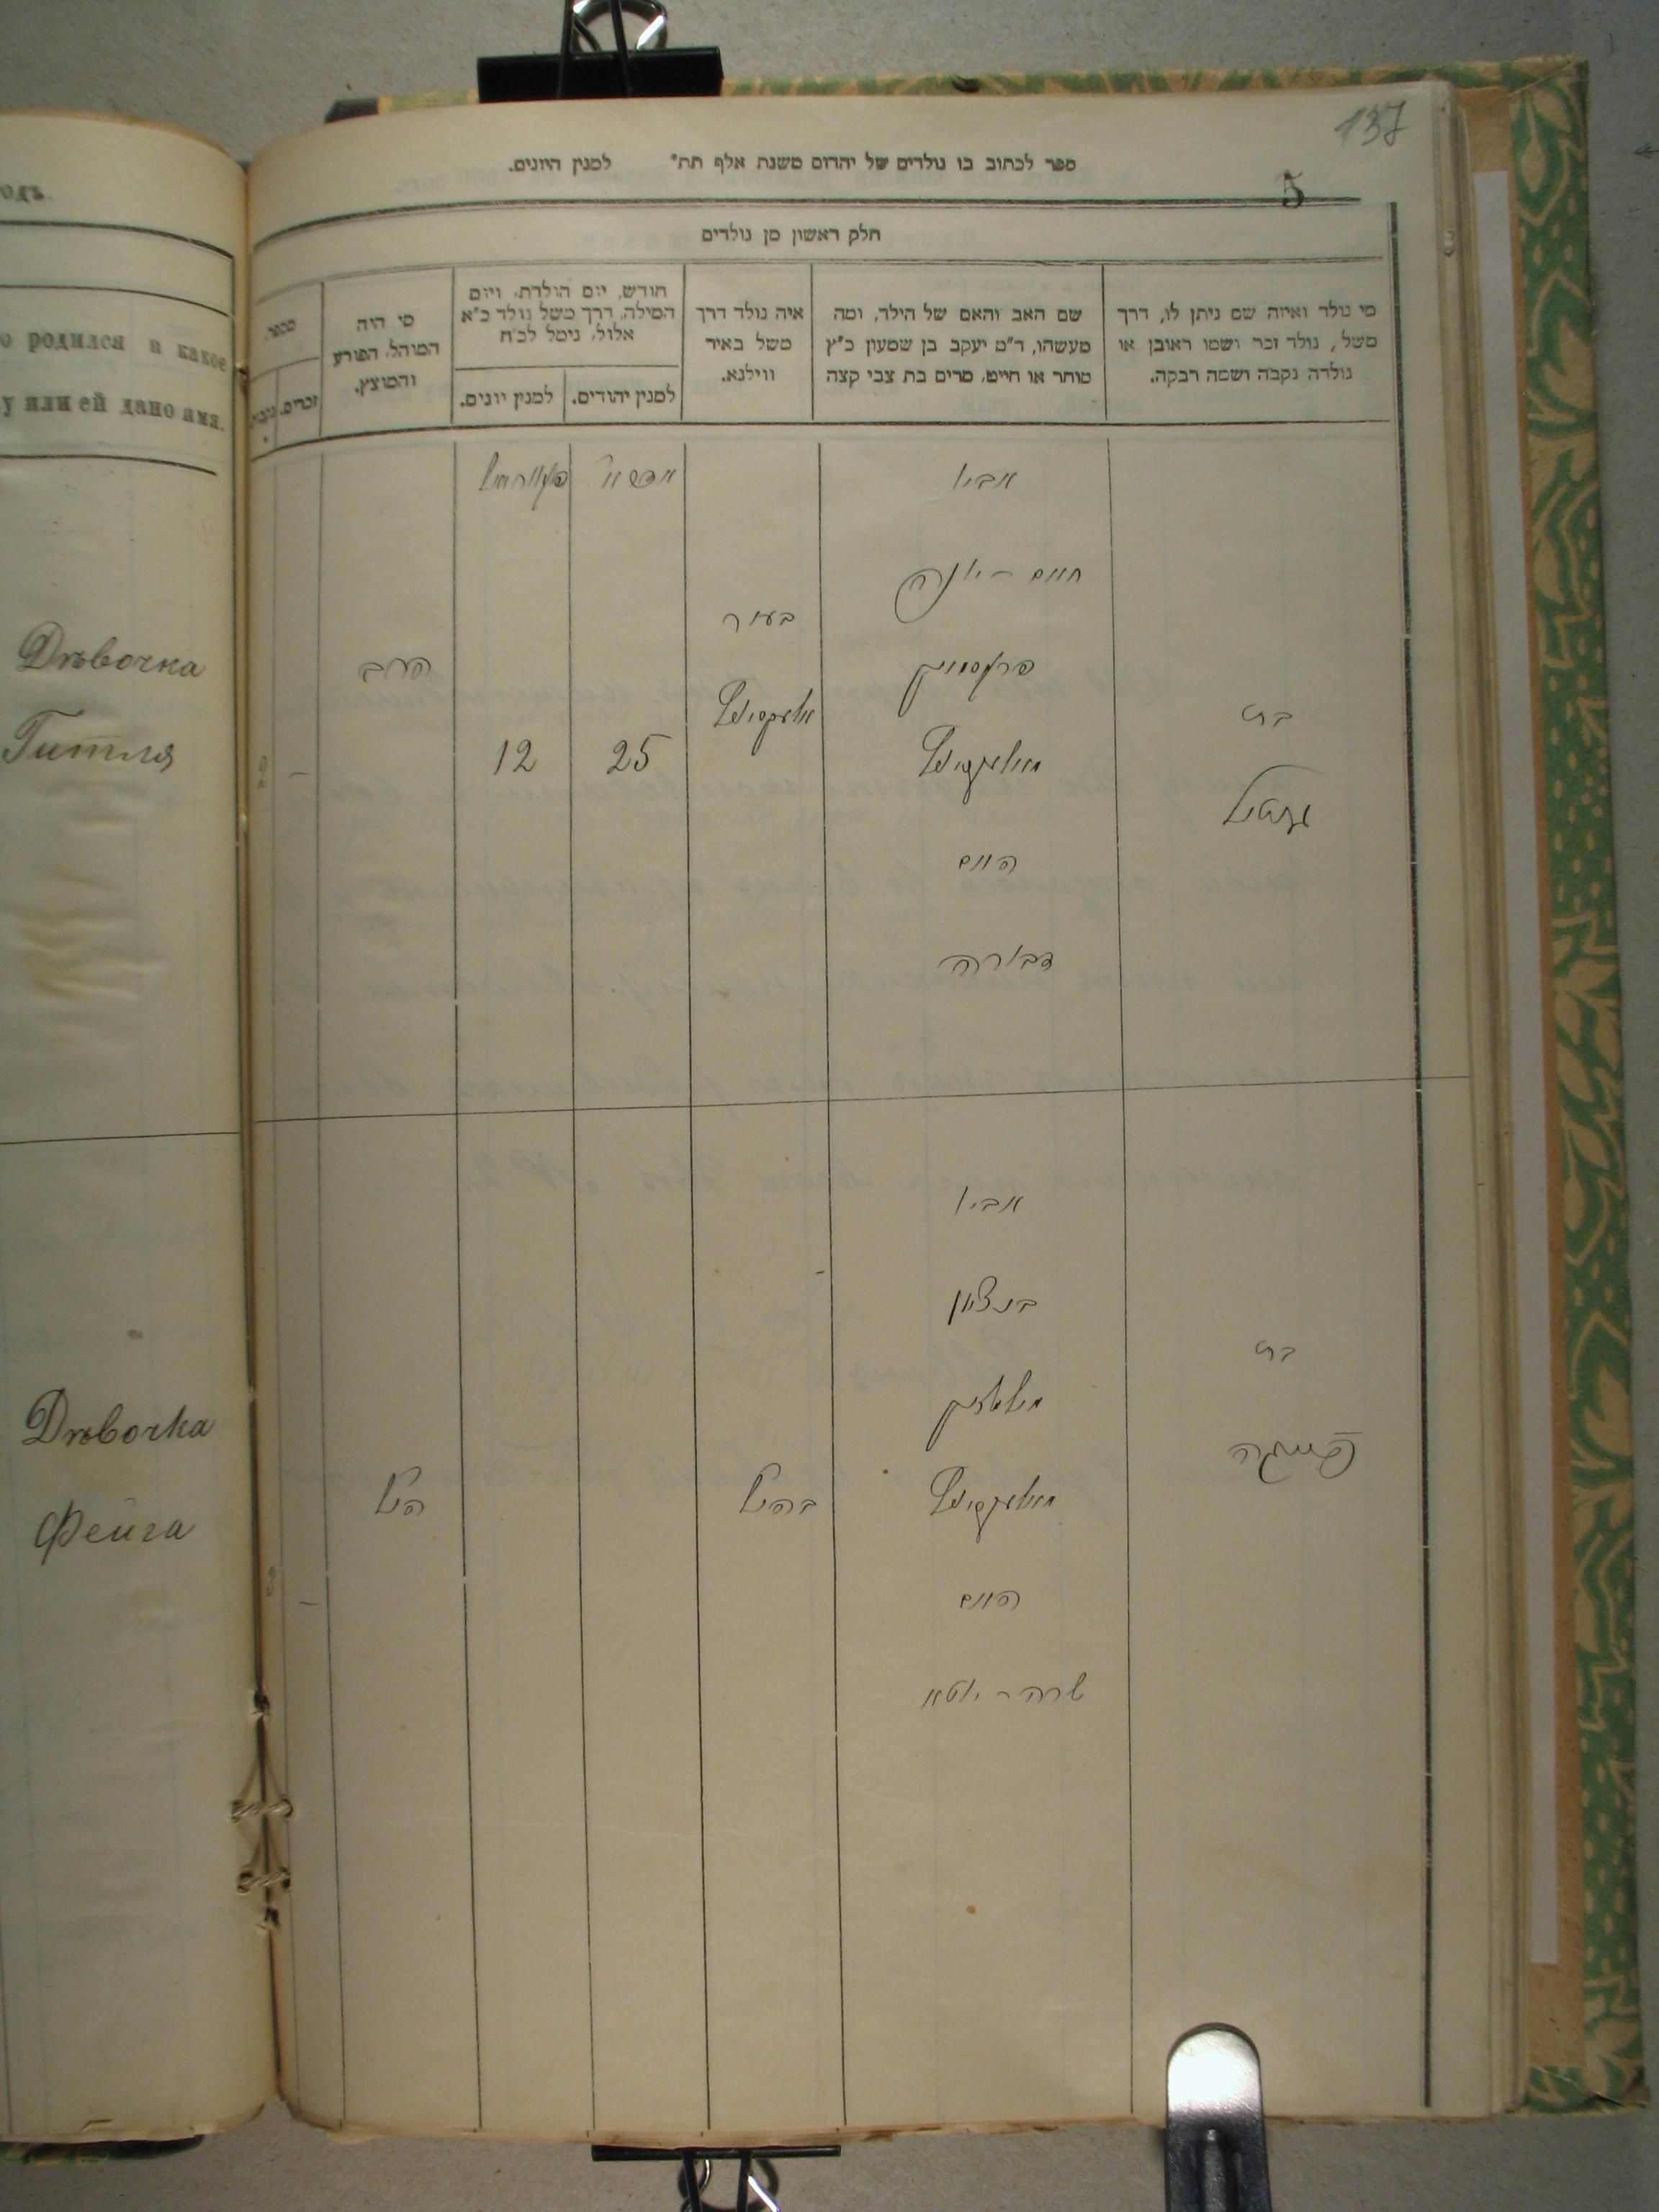 137
ספר לכתוב בו נולדים של יהדום משנת אלף תת״ למנין היונים.
5
חלק ראשון מן נולדים
מי נולד ואיזה שם ניתן לו, דרך
משל, נולד זכר ושמו ראובן או
נולדה נקבה ושמה רבקה.
שם האב והאם של הילד, ומה
מעשהו, ד״מ יעקב בן שמעון כ״ץ
סוחר או חייט, מרים בת צבי קצה
איה נולד דרך
משל באיר
ווילנא.
חודש, יום הולדת, ויום
המילה, דרך משל נולד כ״א
אלול, נימל לכ״ח
למנין יהודים.
למנין יונים.
מי היה
המוהל, הפורע
והמוצץ.
מספר
זכרים.
одъ.
о родился и какое
у или ей дано имя.
אביו
חיים - יונה
האם
דבורה
בת
בעיר
25
12
הרב
2
-
Дѣвочка
Гитля
אביו
בנציון
האם
שרה - יוטא
בת
פייגה
בהנ״ל
הנ״ל
3
-
Дѣвочка
Фейга